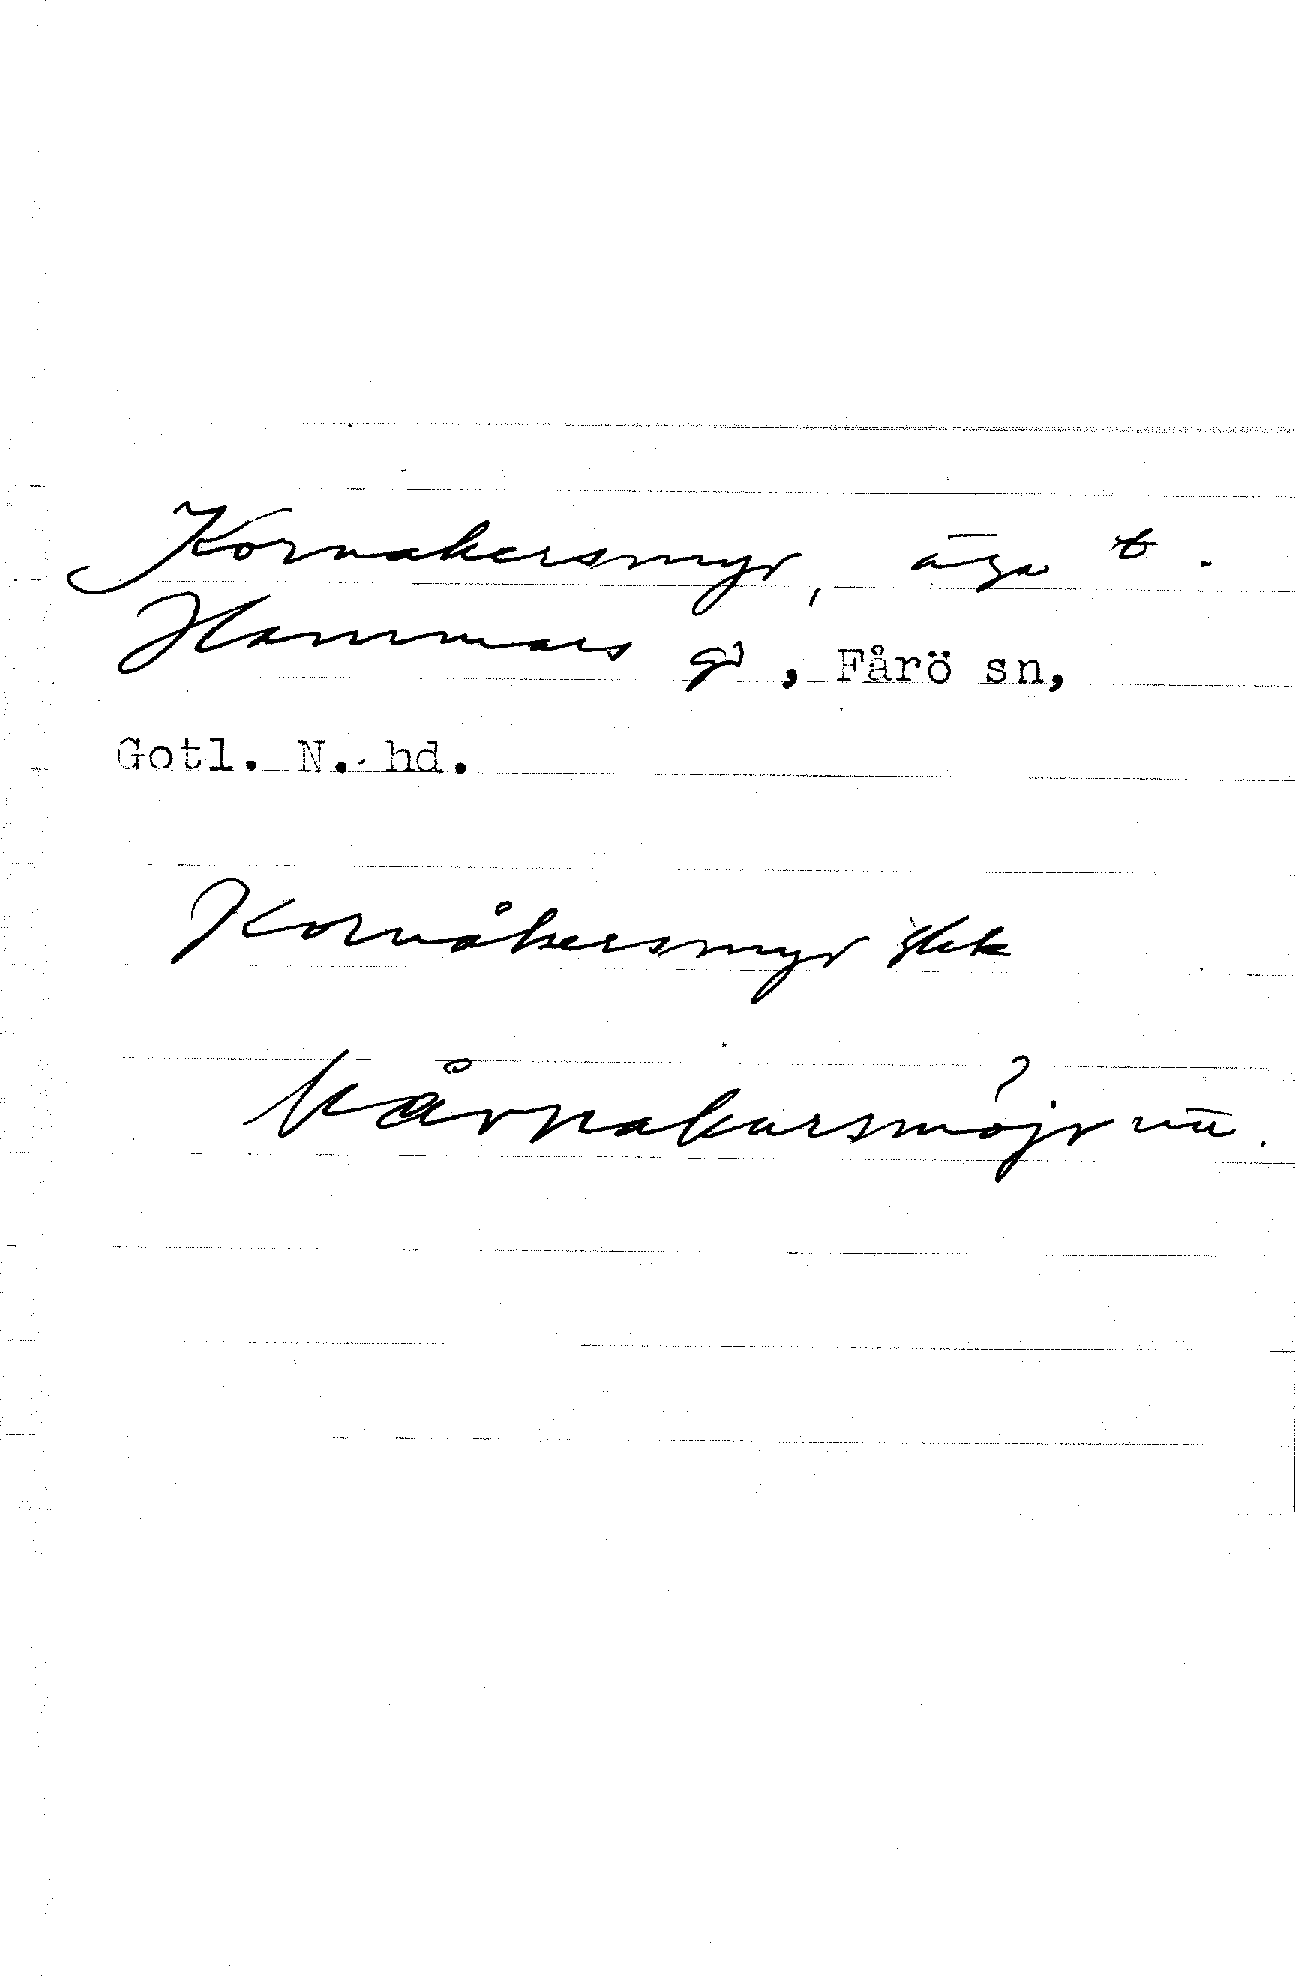 Kornakersmyr, äga t.
Hammars gd, Fårö sn,
Gotl. N. hd.
Kornåkersmyr
kårnakursmöjr